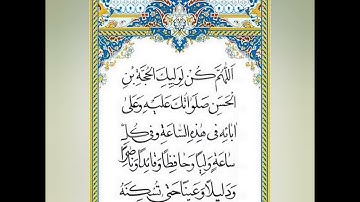 اَللّهُمَّ كُنْ لِوَلِيِّكَ الْحُجَّةِ بْنِ
الْحَسَنِ صَلَواتُكَ عَلَيْهِ وَعَلى
ابائِهِ في هذِهِ السّاعَةِ وَفي كُلِّ
ساعَةٍ وَلِيّاً وَحافِظاً وَقائِداً وَناصِراً
وَدَليلاً وَعَيْناً حَتّى تُسْكِنَهُ